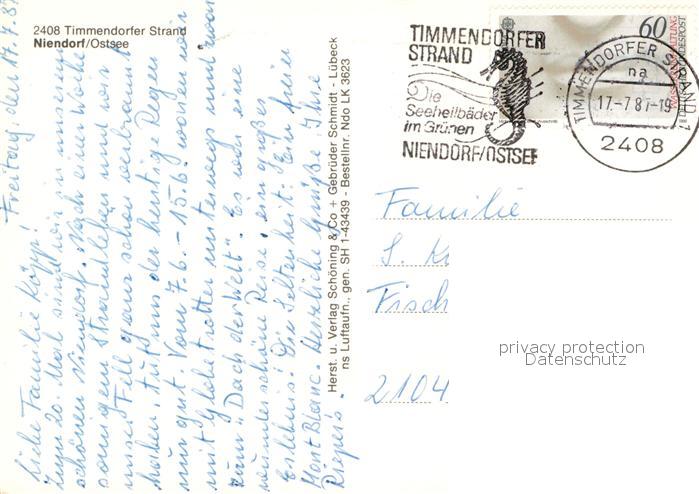 2408 Timmendorfer Strand
Niendorf/Ostsee
Freitag, den 17.7.87
Liebe Familie Köpp!
Zum 20. Mal sind wir in unserem
schönen Niendorf. Nach einer Woche
sonnigem Strandleben und wir
unser Fell ganz schön verbrannt
haben, tut uns der heutige Regen
nur gut. Vom 7.6. - 15.6. wir
mit Globetrotter unterwegs und zwar
zum "Dach der Welt". Es war eine
wunderschöne Reise, ein großes
Erlebnis. Die Seltenheit: Ein freier
Mont Blanc. Herzliche Grüße Ihre
Riepers.
Herst. u. Verlag Schöning & Co + Gebrüder Schmidt - Lübeck
ns Luftaufn., gen. SH 1-43439 - Bestellnr. Ndo LK 3623
TIMMENDORFER
STRAND
Die
Seeheilbäder
im Grünen
NIENDORF/OSTSEE
60
TIMMENDORFER STRAND 1
na
17.-7.87-19
2408
Familie
S. K
Fisch
2104
privacy protection
Datenschutz